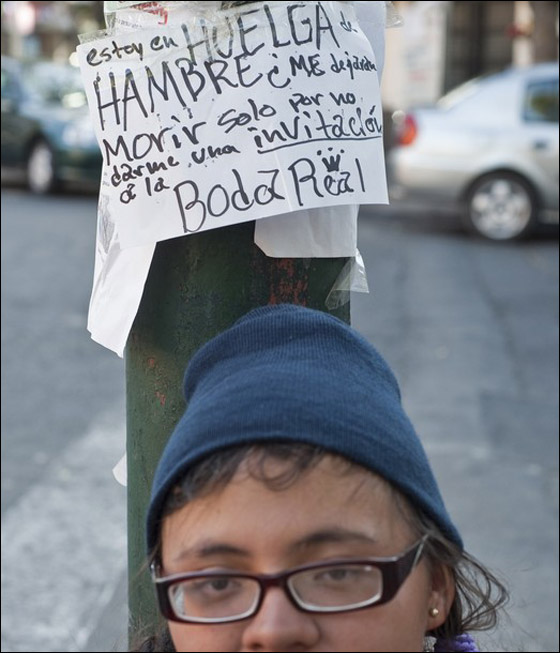 estoy en HUELGA de
HAMBRE ¿ME dejarán
MORIR solo por no
darme una invitación
a la Boda Real